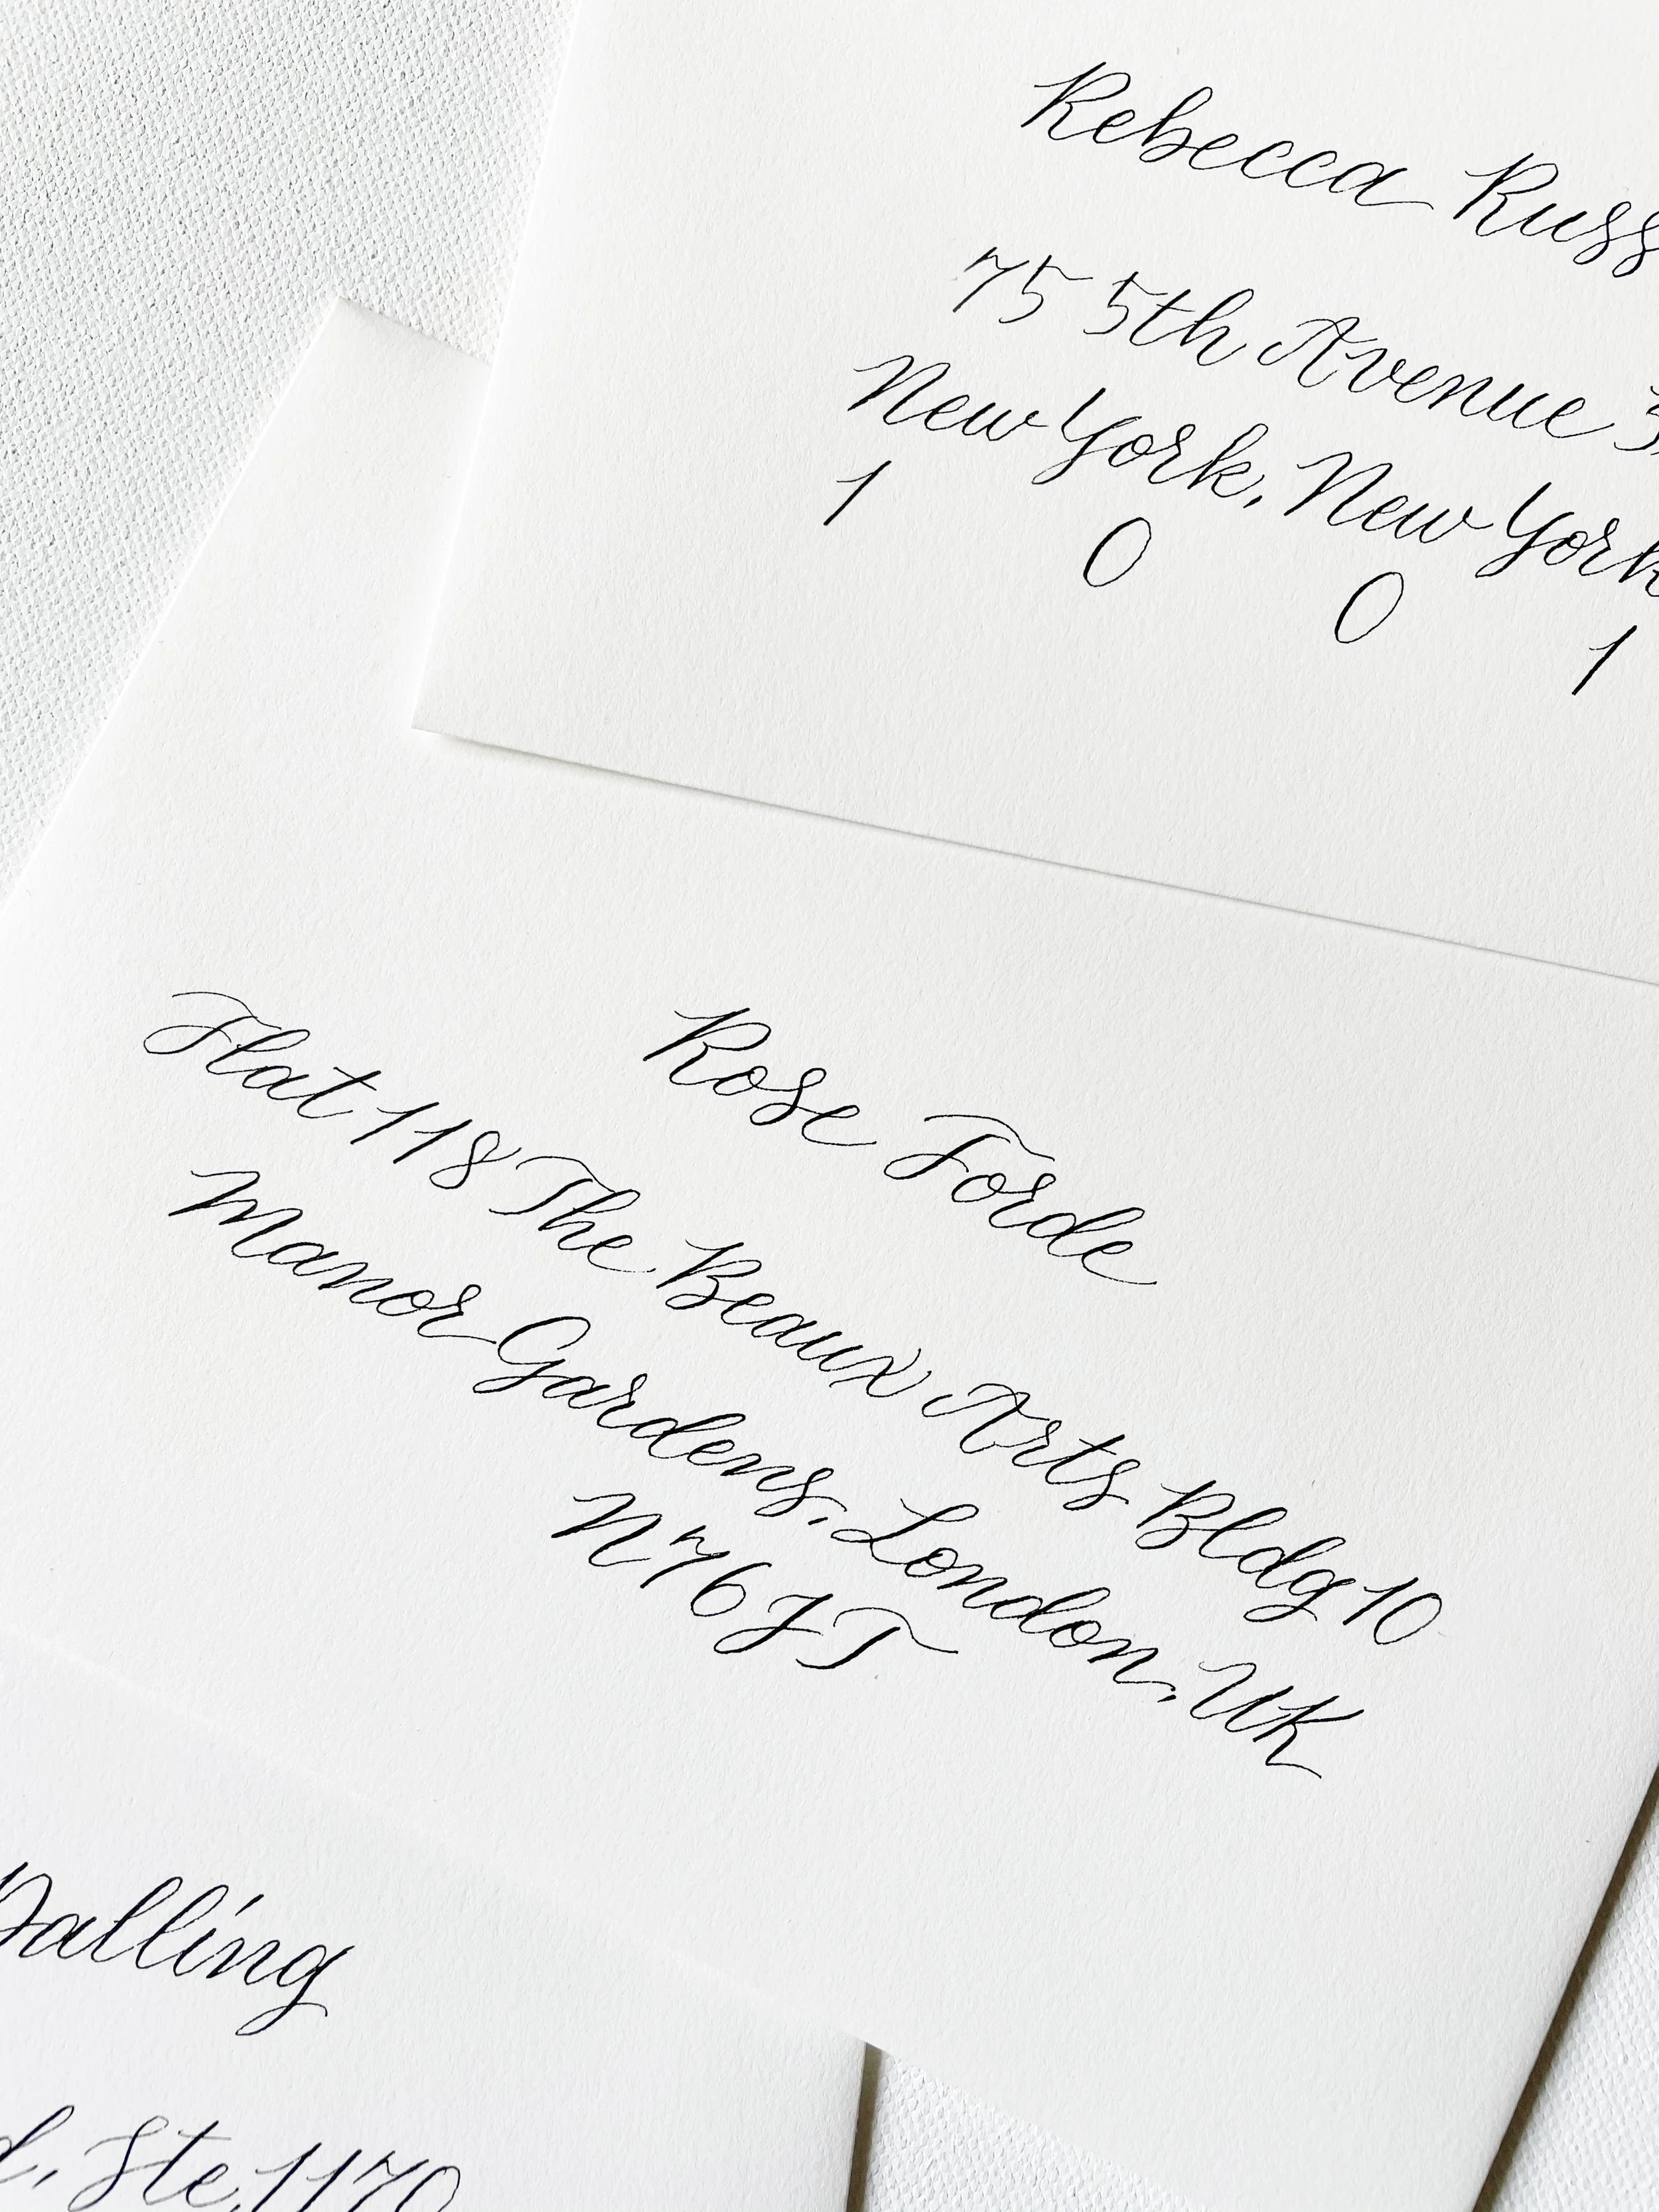 Rebecca Russ
75 5th Avenue 3
New York, New York
1 0 0 1
Rose Forde
Flat 118 The Beaux Arts Bldg 10
Manor Gardens, London, UK
N76JT
Dalling
d, Ste 1170